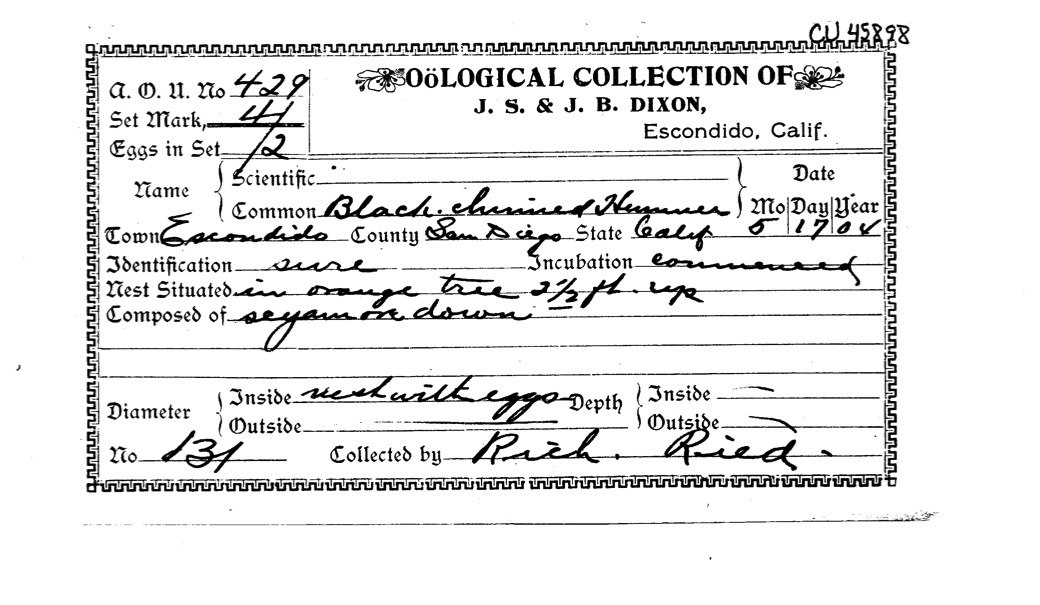 CU 45898
A. O. U. No 429
OöLOGICAL COLLECTION OF
J. S. & J. B. DIXON,
Escondido, Calif.
Set Mark,
Eggs in Set 2
Name
Scientific
Common Black. chinned Hummer
Date
Mo Day Year
5 17 04
Town Escondido County San Diego State Calif
Identification sure Incubation commenced
Nest Situated in orange tree 2½ ft. up
Composed of seyamore down
Diameter
Inside nest with eggs
Outside
Depth
Inside
Outside
No 131 Collected by Rich. Ried.